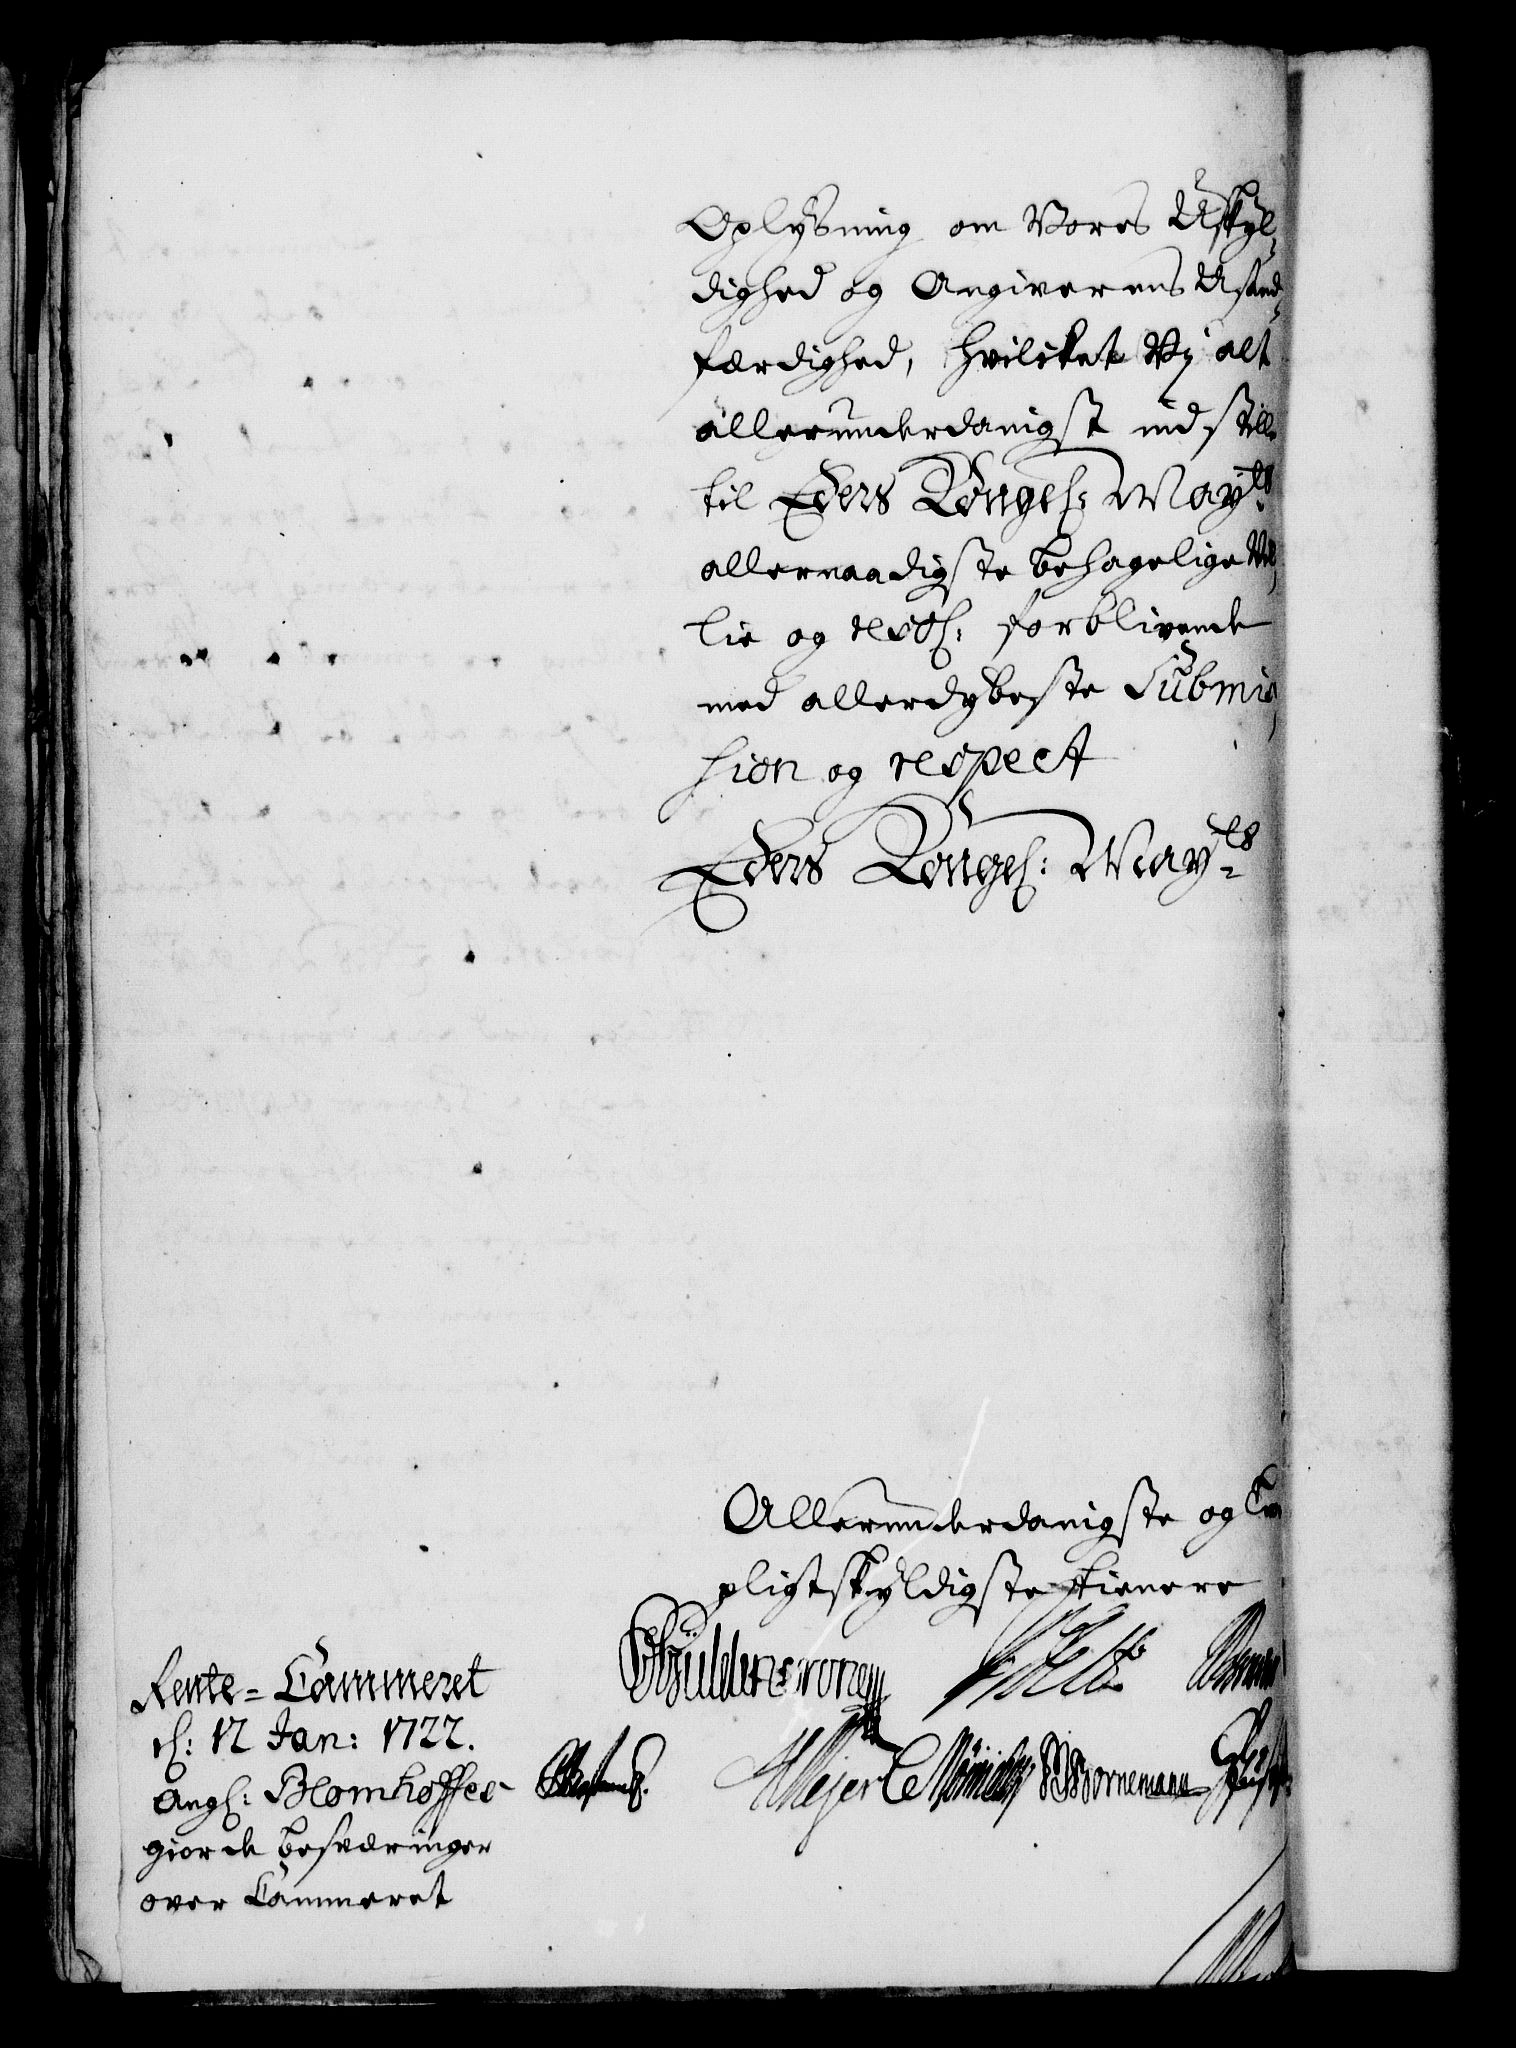 Oplysning om Vores Uskyl-
dighed og Angiverens Ustad-
færdighed, hvilcket Vj alt
allerunderdanigst indstille
til Eders Kongel: Mayts
allernaadigste behagelige Vil-
lie og forblivende
med allerdybeste Submis-
sion og respect
Eders Kongel: Mayts
Allerunderdanigste og
pligtskyldigste tienere
Güldencrone
Meyer C Bornemann
Rente-Cammeret
d: 12 Jan: 1722.
Angl: Blomhoffes
giorde besværinger
over Cammeret